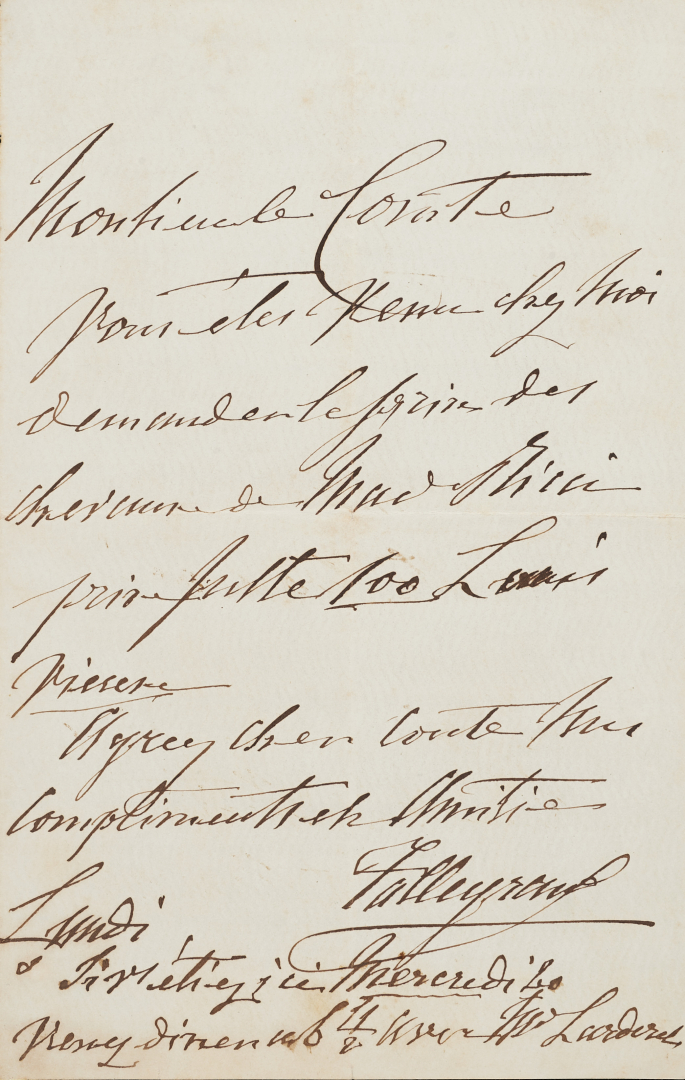 Monsieur le Comte
vous êtes venu chez moi
demander le prix des
chevaux de Mad Ricci
prix juste 100 Louis
pieces
Agreez cher Conte mes
compliments et Amitie
Talleyrand
Lundi
Si v étiez ici Mercredi 20
venez diner a 6 1/2 avec Mr Larderel